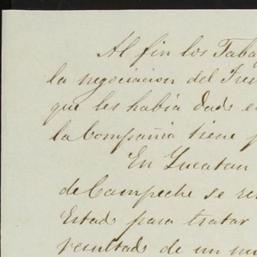 Al fin los Taba
la negociacion del Fre
que les habia dado e
la Compañia tiene p
En Yucatan
de Campeche se re
Estado para tratar
resultado de un nu